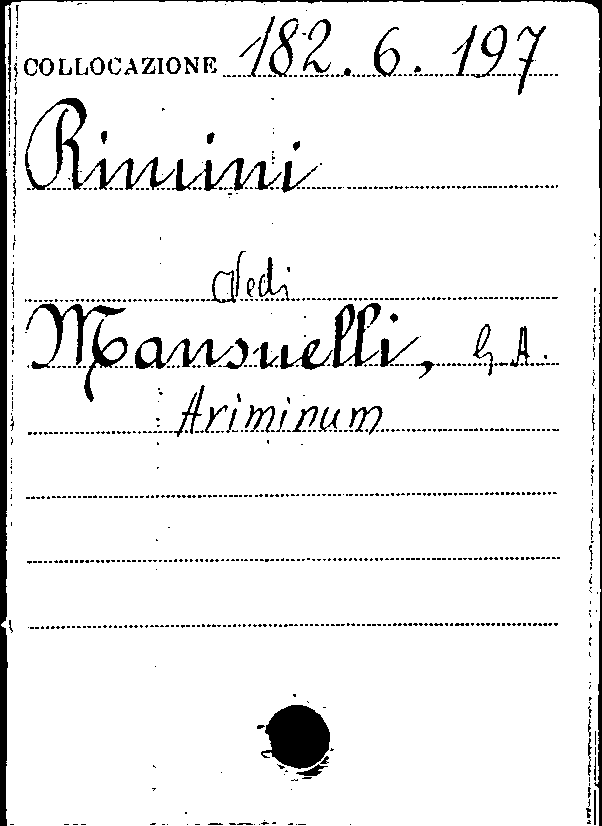 COLLOCAZIONE 182.6.197
Rimini
Vedi
Mansuelli, G. A.
Ariminum